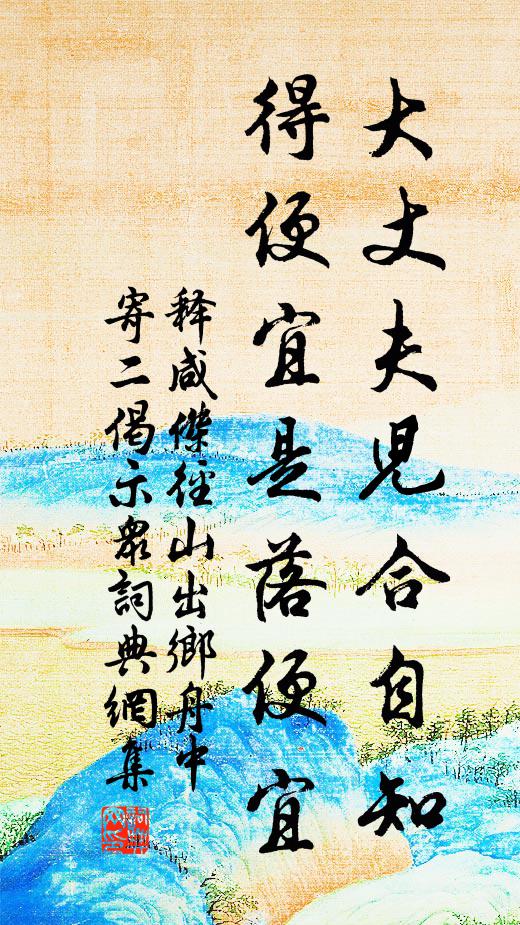 大丈夫児合自知
得便宜是落便宜
释咸傑徑山出鄉舟中
寄二偈示衆詞典網集